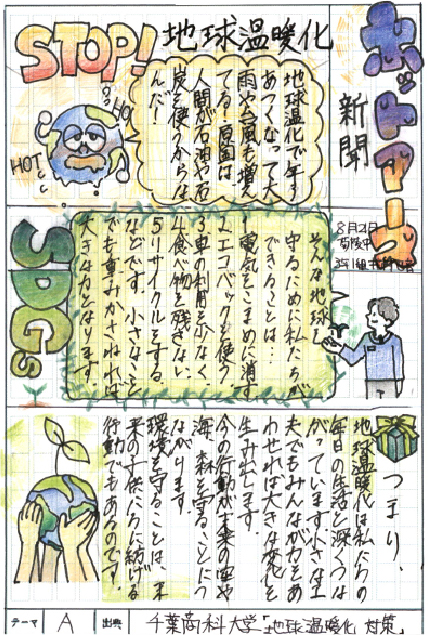 ホットアース
新聞
STOP!地球温暖化
HOT
HOT
地球温化で年々
あつくなって大
雨や台風も増え
てる!原因は、
人間が石油や石
炭を使うからな
んだ!
8月21日
SDGs
そんな地球を
守るために私たちが
できることは…
1電気をこまめに消す
2エコバックを使う
3車の利用を少なく
4食べ物を残さない
5リサイクルをする
などです。小さなこと
でも重みかさねれば
大きな力となります。
つまり、
地球温暖化は私たちの
毎日の生活と深くつな
がっています。小さな工
夫でもみんなが力をあ
わせれば大きな変化を
生み出します。
今の行動が未来の空や
海、森を守ることにつ
ながります。
環境を守ることは、未
来の子供たちに続ける
行動でもあるのです。
テーマ A 出典 千葉商科大学「地球温暖化 対策」